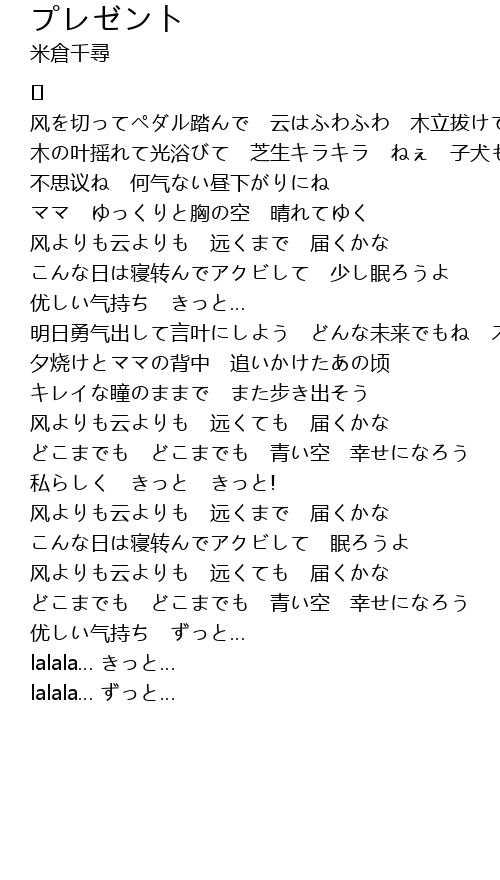 プレゼント
米倉千尋
[]
风を切ってペダル踏んで　云はふわふわ　木立抜けて
木の叶摇れて光浴びて　芝生キラキラ　ねぇ　子犬も
不思议ね　何气ない昼下がりにね
ママ　ゆっくりと胸の空　晴れてゆく
风よりも云よりも　远くまで　届くかな
こんな日は寝转んでアクビして　少し眠ろうよ
优しい气持ち　きっと…
明日勇气出して言叶にしよう　どんな未来でもね
夕烧けとママの背中　追いかけたあの顷
キレイな瞳のままで　また步き出そう
风よりも云よりも　远くても　届くかな
どこまでも　どこまでも　青い空　幸せになろう
私らしく　きっと　きっと!
风よりも云よりも　远くまで　届くかな
こんな日は寝转んでアクビして　眠ろうよ
风よりも云よりも　远くても　届くかな
どこまでも　どこまでも　青い空　幸せになろう
优しい气持ち　ずっと…
lalala… きっと…
lalala… ずっと…